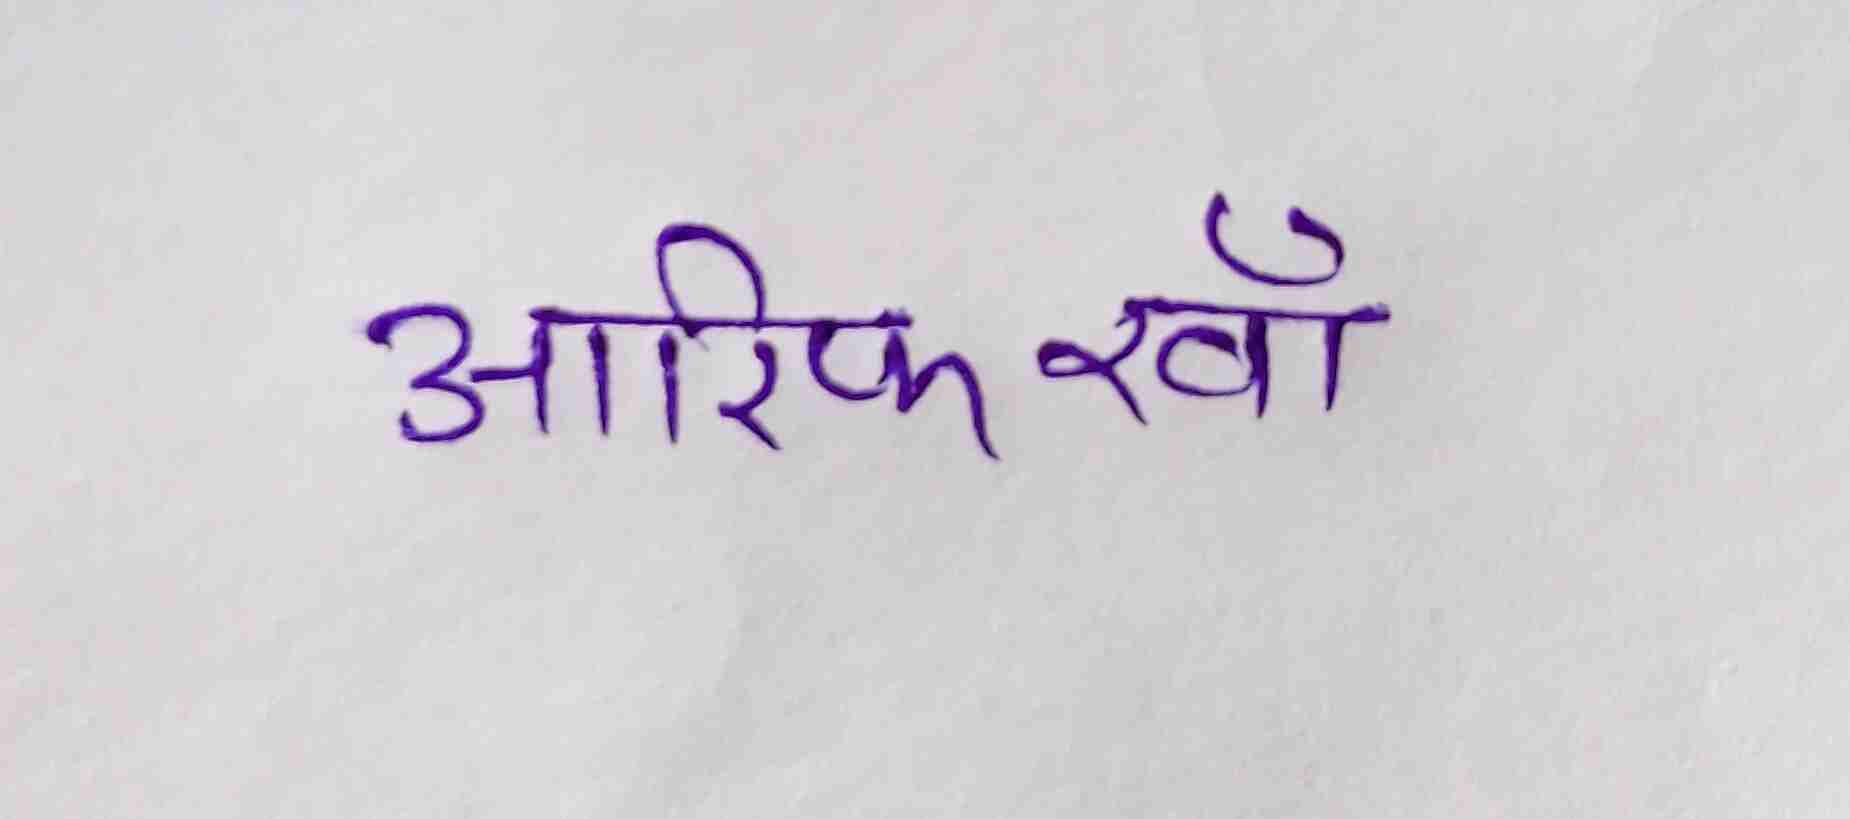 आरिफ खाँ